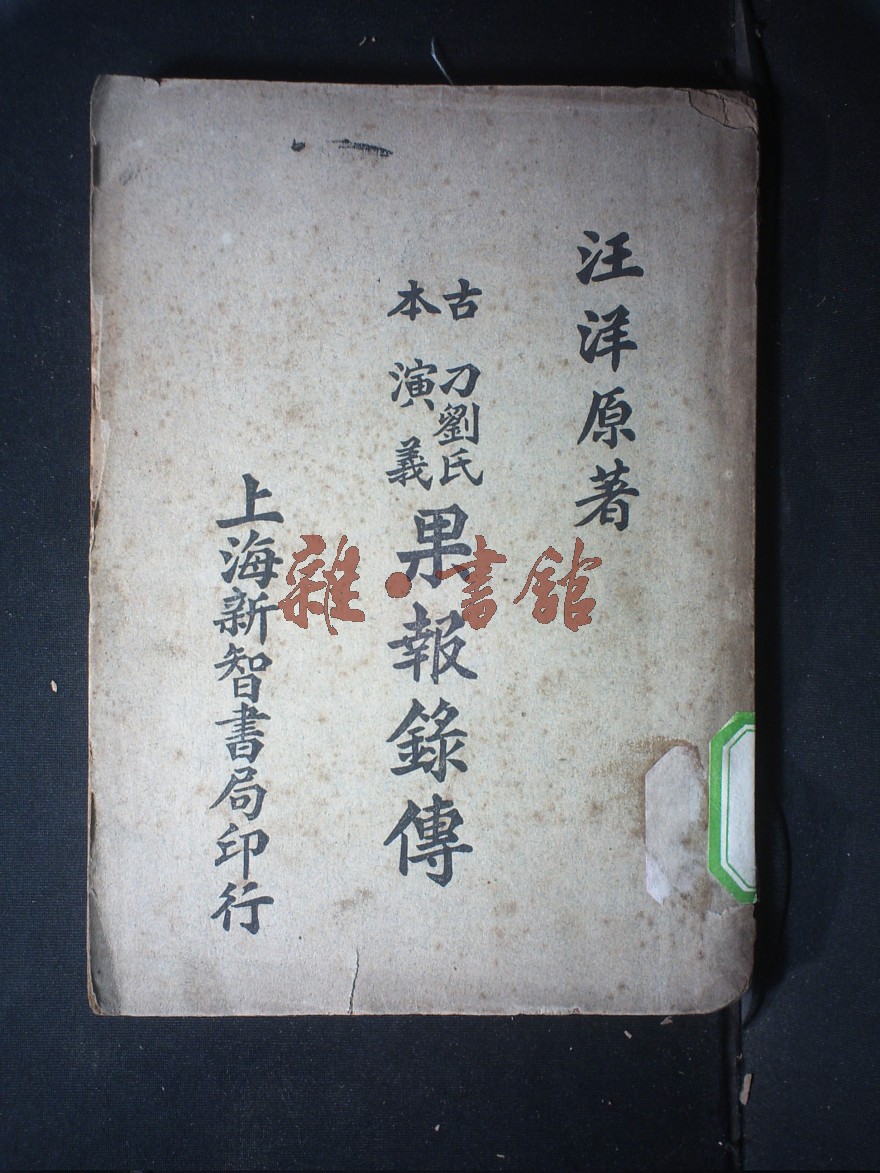 汪洋原著
古本
刀劉氏
演義
果報錄傳
上海新智書局印行
雜·書館